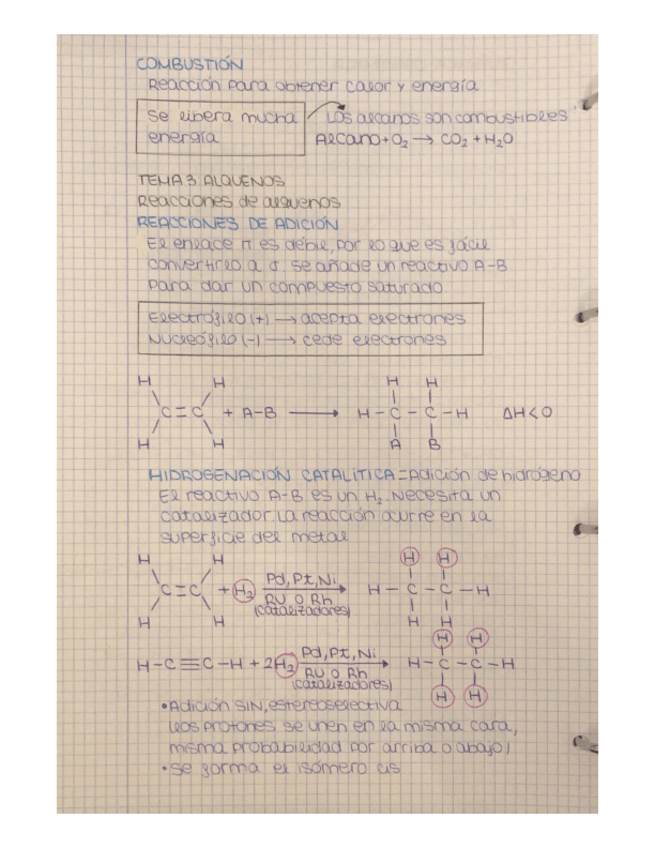 COMBUSTIÓN
Reacción para obtener calor y energía
Se libera mucha energía
Los alcanos son combustibles
Alcano + O₂ → CO₂ + H₂O
TEMA 3: ALQUENOS
Reacciones de alquenos
REACCIONES DE ADICIÓN
El enlace π es débil, por lo que es fácil
convertirlo a σ. Se añade un reactivo A-B
para dar un compuesto saturado
Electrófilo (+) → acepta electrones
Nucleófilo (-) → cede electrones
H H H H
C = C + A-B → H - C - C - H ΔH < 0
H H A B
HIDROGENACIÓN CATALÍTICA = Adición de hidrógeno
El reactivo A-B es un H₂. Necesita un
catalizador. La reacción ocurre en la
superficie del metal
H H H H
C = C + H₂ Pd, Pt, Ni → H - C - C - H
RU o Rh
(catalizadores)
H H H H
H H
H - C ≡ C - H + 2H₂ Pd, Pt, Ni → H - C - C - H
RU o Rh
(catalizadores)
H H
• Adición SIN, estereoselectiva
(los protones se unen en la misma cara,
misma probabilidad por arriba o abajo)
• Se forma el isómero cis